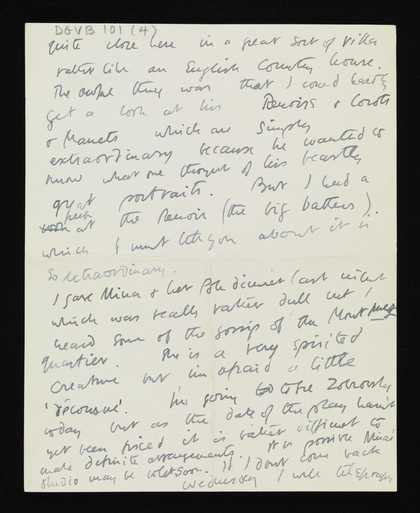 DGVB 101 (4)
quite close here in a great sort of villa
rather like an English Country house.
The awful thing was that I could hardly
get a look at his Renoirs & Corots
& Manets which are simply
extraordinary because he wanted to
know what one thought of his beastly
great portraits. But I had a
peek
at the Renoir (the big bathers).
which I must tell you about it is
so extraordinary.
I gave Mina & her Pole dinner last night
which was really rather dull but I
heard some of the gossip of the Mont
quartier. She is a very spirited
creature but I'm afraid a little
'décousue'. I'm going to see Zborowsky
today but as the date of the play hasn't
yet been fixed it is rather difficult to
make definite arrangements. It is possible Mina's
studio may be let soon. If I don't come back
Wednesday I will telegraph